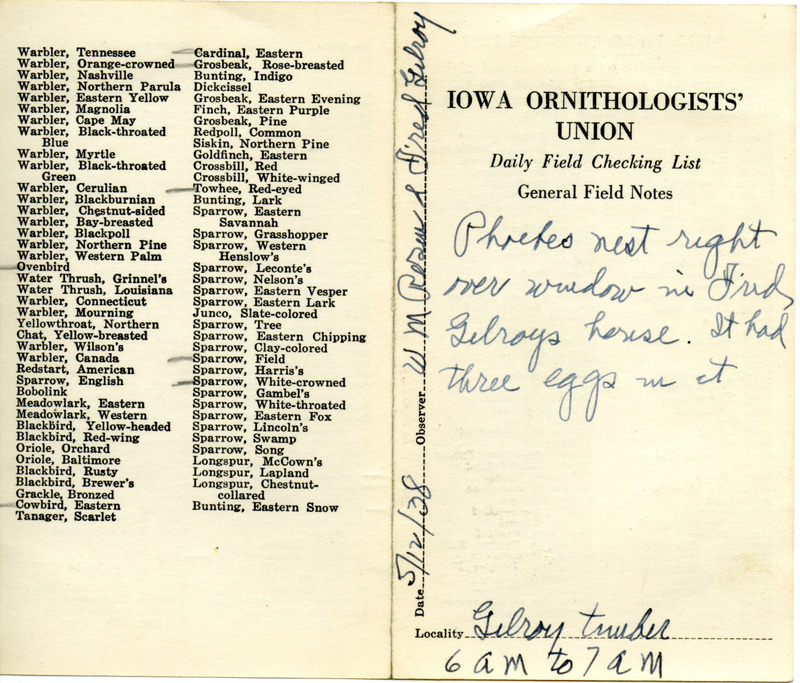 Warbler, Tennessee
Warbler, Orange-crowned
Warbler, Nashville
Warbler, Northern Parula
Warbler, Eastern Yellow
Warbler, Magnolia
Warbler, Cape May
Warbler, Black-throated
Blue
Warbler, Myrtle
Warbler, Black-throated
Green
Warbler, Cerulian
Warbler, Blackburnian
Warbler, Chestnut-sided
Warbler, Bay-breasted
Warbler, Blackpoll
Warbler, Northern Pine
Warbler, Western Palm
Ovenbird
Water Thrush, Grinnel's
Water Thrush, Louisiana
Warbler, Connecticut
Warbler, Mourning
Yellowthroat, Northern
Chat, Yellow-breasted
Warbler, Wilson's
Warbler, Canada
Redstart, American
Sparrow, English
Bobolink
Meadowlark, Eastern
Meadowlark, Western
Blackbird, Yellow-headed
Blackbird, Red-wing
Oriole, Orchard
Oriole, Baltimore
Blackbird, Rusty
Blackbird, Brewer's
Grackle, Bronzed
Cowbird, Eastern
Tanager, Scarlet
Cardinal, Eastern
Grosbeak, Rose-breasted
Bunting, Indigo
Dickcissel
Grosbeak, Eastern Evening
Finch, Eastern Purple
Grosbeak, Pine
Redpoll, Common
Siskin, Northern Pine
Goldfinch, Eastern
Crossbill, Red
Crossbill, White-winged
Towhee, Red-eyed
Bunting, Lark
Sparrow, Eastern
Savannah
Sparrow, Grasshopper
Sparrow, Western
Henslow's
Sparrow, Leconte's
Sparrow, Nelson's
Sparrow, Eastern Vesper
Sparrow, Eastern Lark
Junco, Slate-colored
Sparrow, Tree
Sparrow, Eastern Chipping
Sparrow, Clay-colored
Sparrow, Field
Sparrow, Harris's
Sparrow, White-crowned
Sparrow, Gambel's
Sparrow, White-throated
Sparrow, Eastern Fox
Sparrow, Lincoln's
Sparrow, Swamp
Sparrow, Song
Longspur, McCown's
Longspur, Lapland
Longspur, Chestnut-
collared
Bunting, Eastern Snow
Date 5/12/38 Observer W M Rosen & Fred Gilroy
IOWA ORNITHOLOGISTS'
UNION
Daily Field Checking List
General Field Notes
Phoebes nest right
over window in Freds
Gilroys house. It had
three eggs in it
Locality Gilroy timber
6 AM to 7 AM